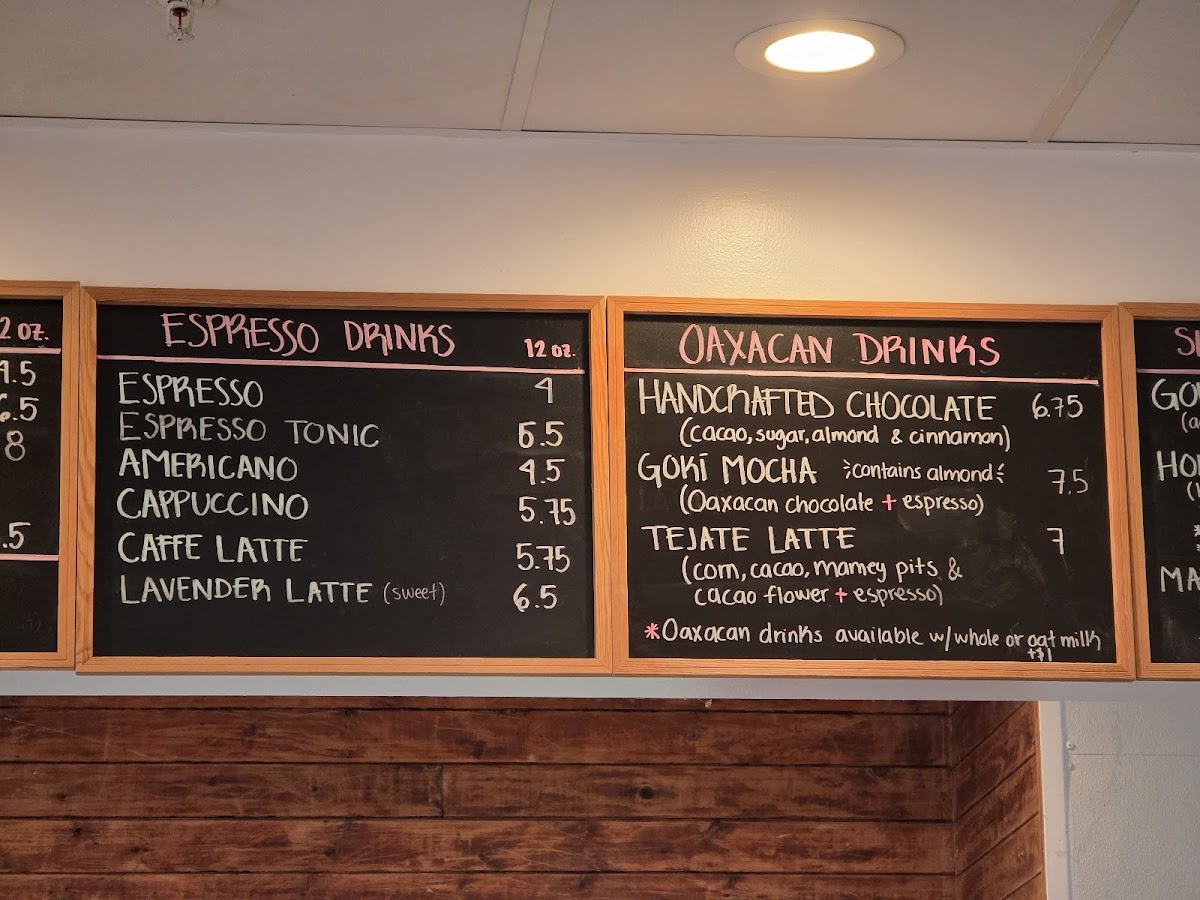 2 oz.
4.5
6.5
8
.5
ESPRESSO DRINKS 12 oz.
ESPRESSO 4
ESPRESSO TONIC 6.5
AMERICANO 4.5
CAPPUCCINO 5.75
CAFFE LATTE 5.75
LAVENDER LATTE (sweet) 6.5
OAXACAN DRINKS
HANDCRAFTED CHOCOLATE 6.75
(cacao, sugar, almond & cinnamon)
GOKÍ MOCHA contains almond 7.5
(Oaxacan chocolate + espresso)
TEJATE LATTE 7
(corn, cacao, mamey pits &
cacao flower + espresso)
*Oaxacan drinks available w/whole or oat milk
+$1